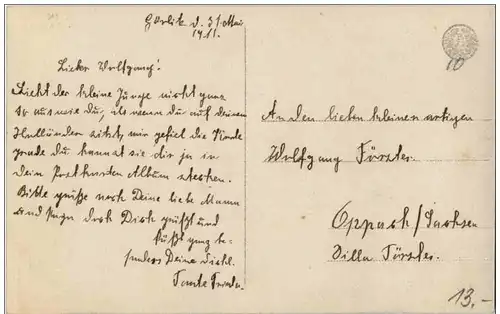 Görlitz d. 31. Mai
1911.
Lieber Wolfgang!
Sieht der kleine Junge nicht ganz
so aus wie du, als wenn du auf deinem
Holländer sitzt, mir gefiel die Karte
grade du kannst sie dir ja in
dein Postkarten Album stecken.
Bitte grüße noch Deine liebe Mama
und Papa Dich grüßt und
küßt ganz be-
sonders Deine Dichl.
Tante Frieda.
An den lieben kleinen artigen
Wolfgang Förster
Oppach/Sachsen
Villa Förster.
10
13.-